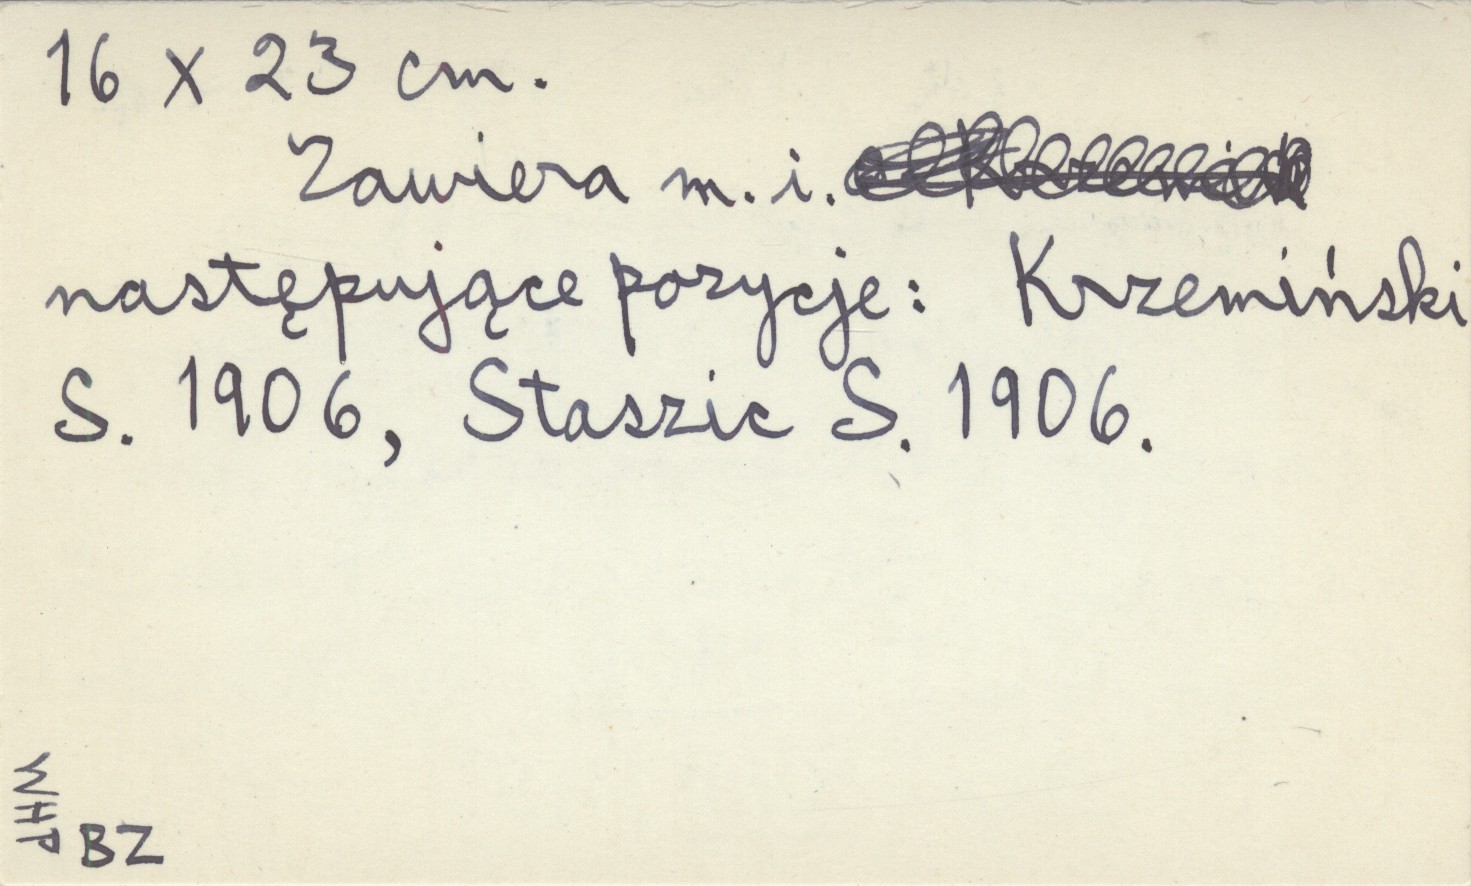 16 x 23 cm.
Zawiera m. i.
następujące pozycje: Krzemiński
S. 1906, Staszic S. 1906.
WHP
BZ